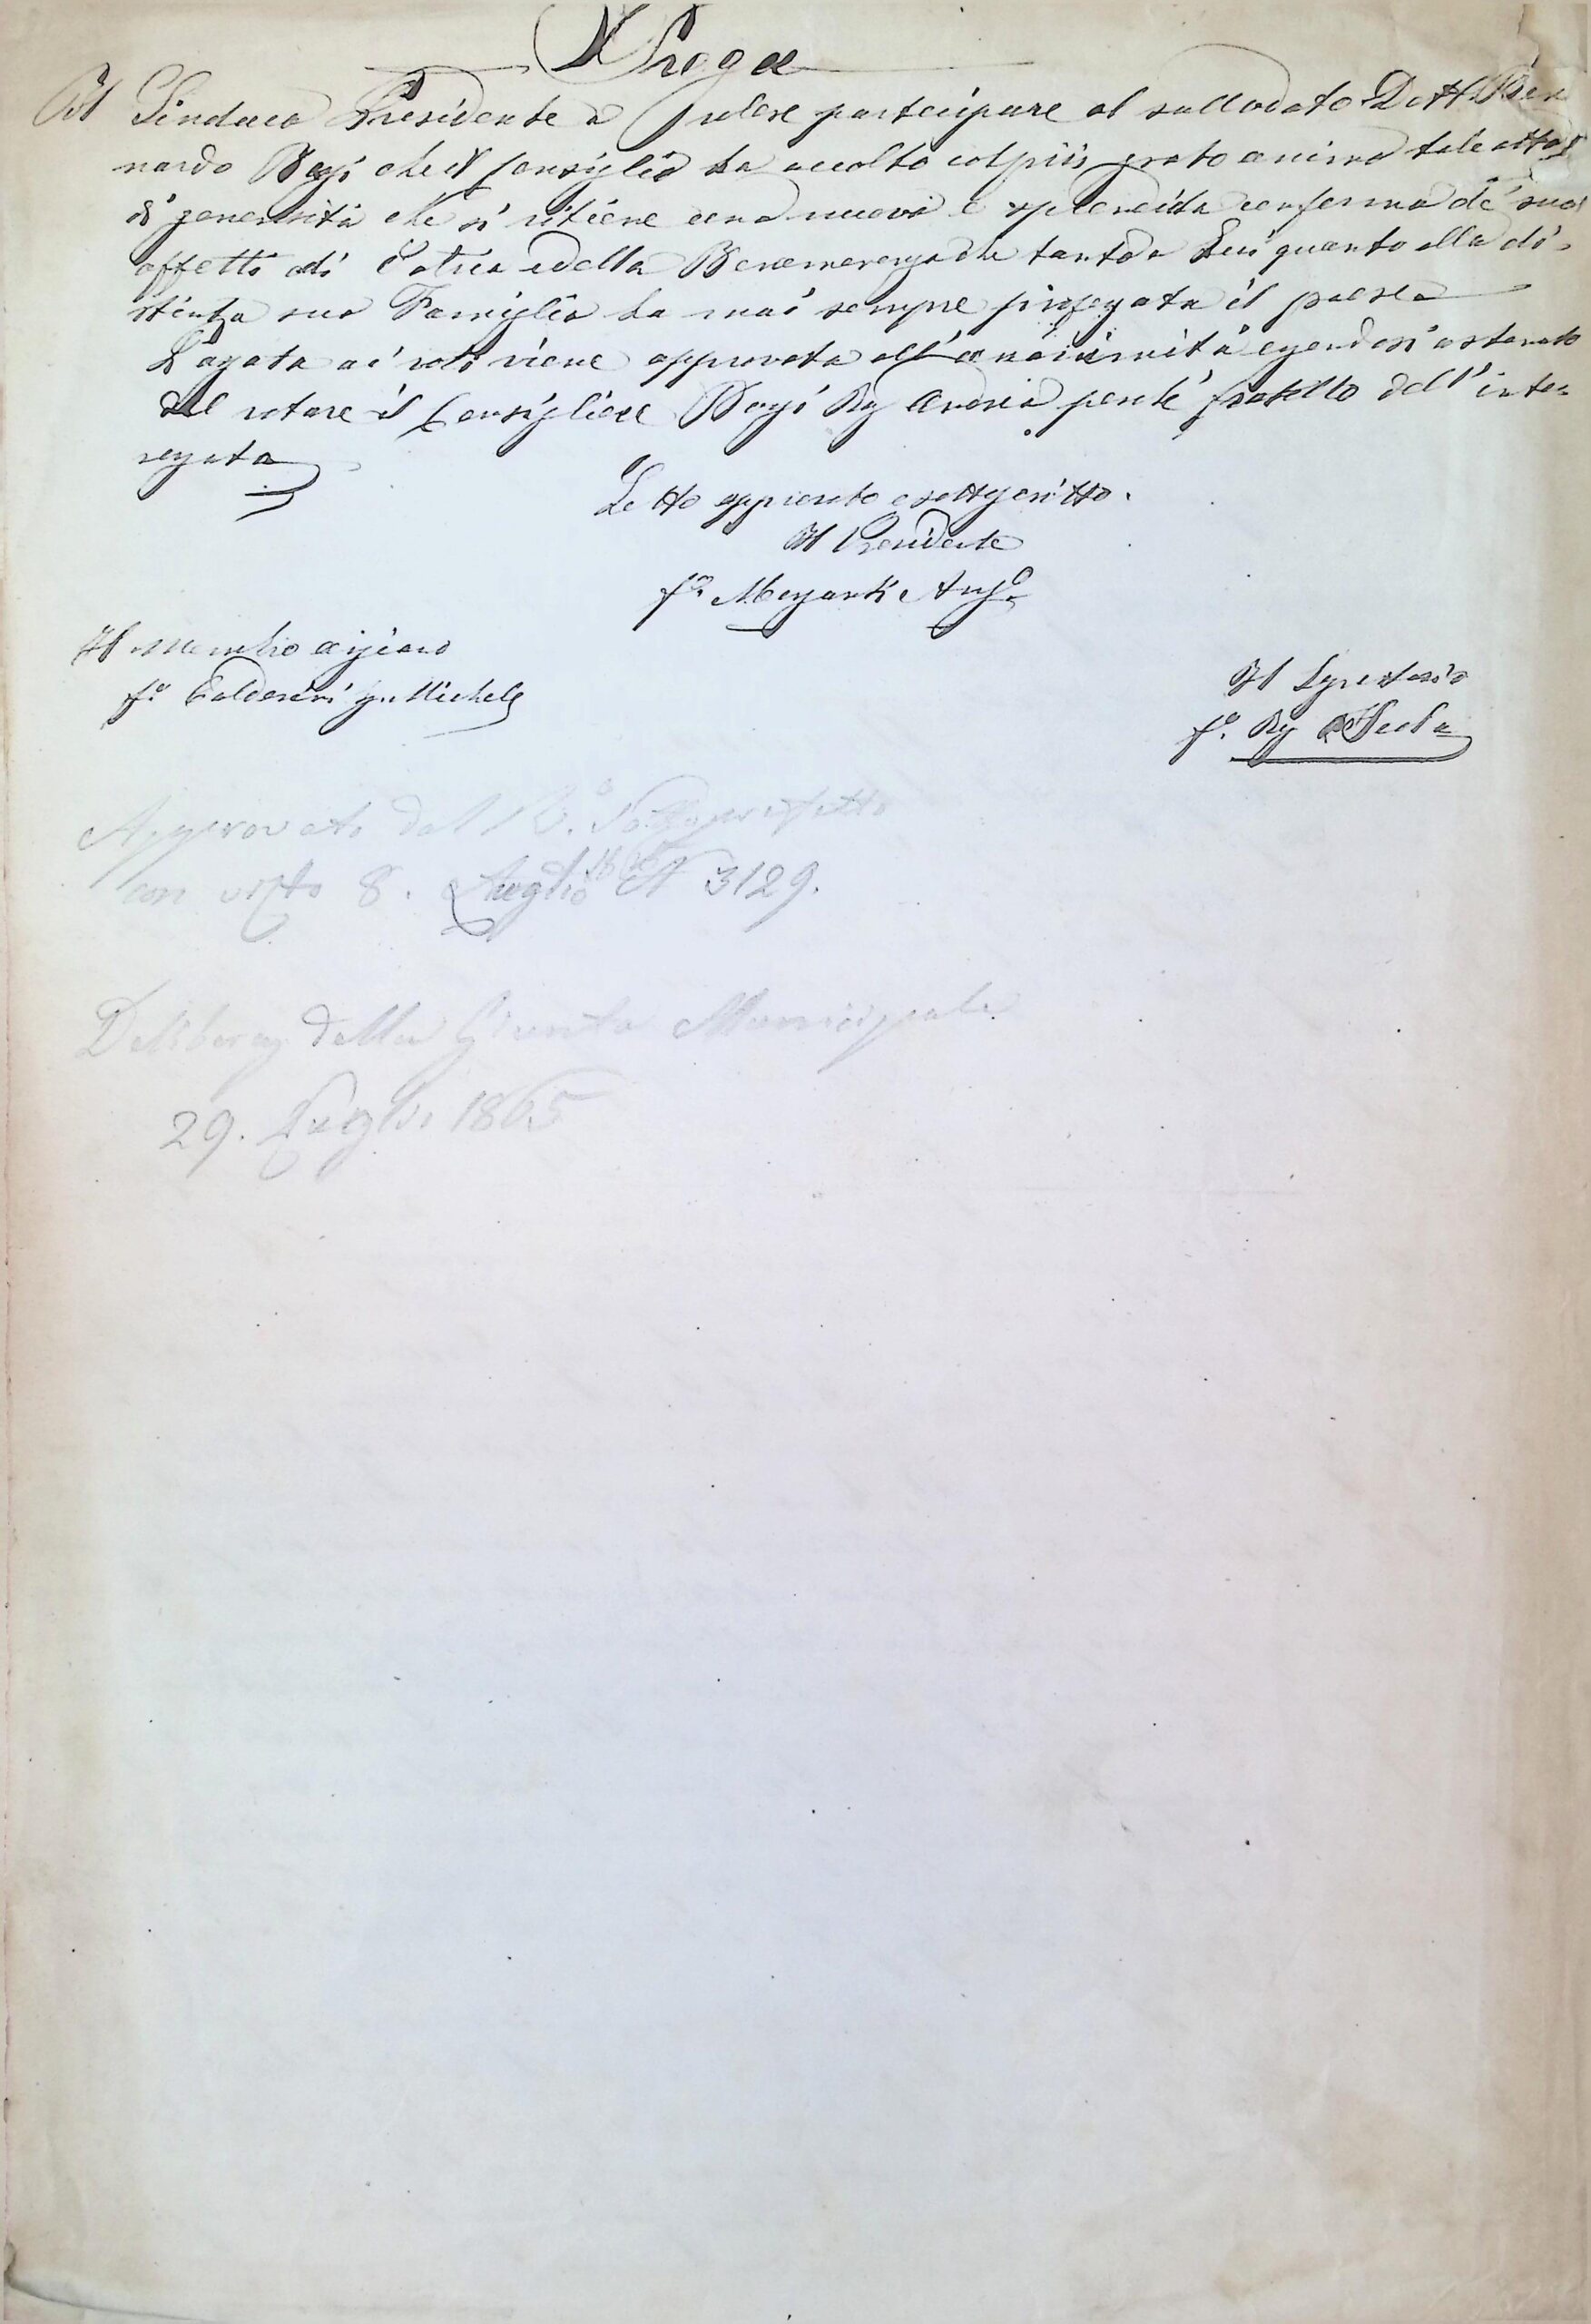 Prega
Il Sindaco Presidente a volere partecipare al sullodato Dott. Ber
nardo che il Consiglio ha accolto col più grato animo tale atto
di generosità che si ritiene una nuova e splendida conferma de' suoi
affetti di Patria e della Benemerenza che tanto a Lui quanto alla di-
stinta sua Famiglia ha mai sempre professata il paese
Passata ai voti viene approvata all'unanimità essendosi astenuto
dal votare il Consigliere Rag Andrea perchè fratello dell'inte-
ressato
Letto approvato e sottoscritto.
Il Presidente
f.º Ang.º
Il membro anziano
f.º Calderini Michele
Il Segretario
f.º Rag
Approvato dal R.º Sottoprefetto
con visto 8. Luglio N 3129.
Deliberaz della Giunta Municipale
29. Luglio 1865